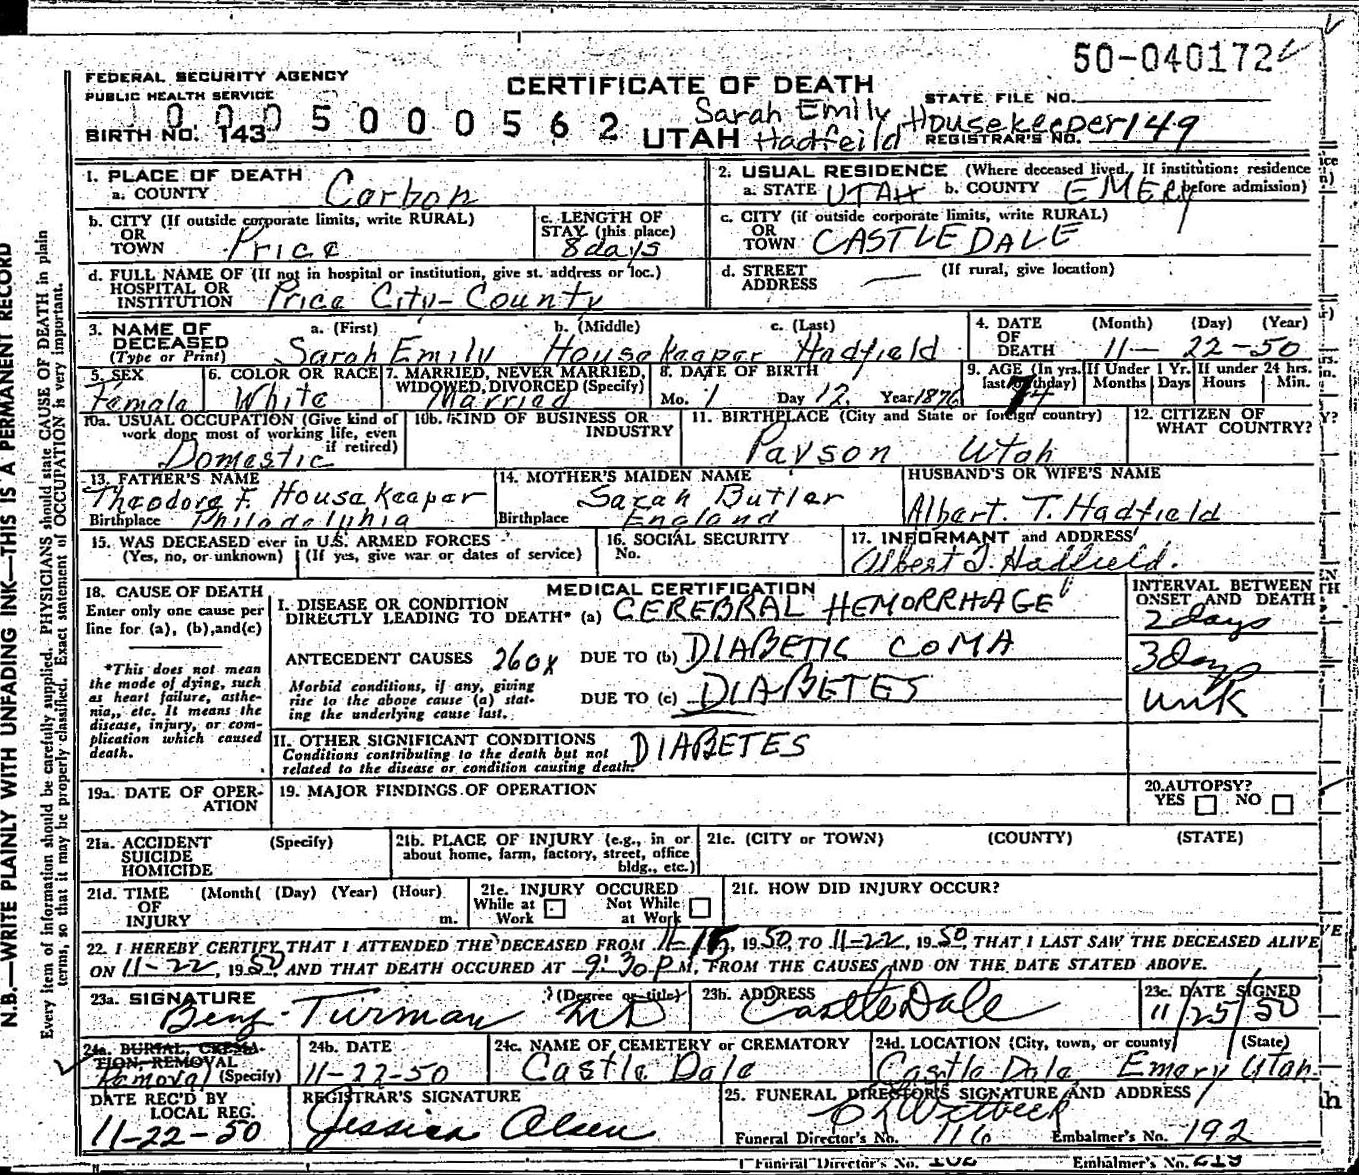 50-040172
FEDERAL SECURITY AGENCY
PUBLIC HEALTH SERVICE
CERTIFICATE OF DEATH
STATE FILE NO.
0 0 0 5 0 0 0 5 6 2
BIRTH NO. 143
UTAH
Sarah Emily Housekeeper
Hadfeild
REGISTRAR'S NO. 149
1. PLACE OF DEATH
a. COUNTY Carbon
2. USUAL RESIDENCE (Where deceased lived. If institution: residence before admission)
a. STATE UTAH b. COUNTY EMERY
b. CITY (If outside corporate limits, write RURAL) OR TOWN Price
c. LENGTH OF STAY (this place) 8 days
c. CITY (if outside corporate limits, write RURAL) OR TOWN CASTLE DALE
d. FULL NAME OF (If not in hospital or institution, give st. address or loc.) HOSPITAL OR INSTITUTION Price City-County
d. STREET ADDRESS — (If rural, give location)
3. NAME OF DECEASED (Type or Print)
a. (First) b. (Middle) c. (Last)
Sarah Emily Housekeeper Hadfield
4. DATE OF DEATH (Month) (Day) (Year)
11- 22-50
5. SEX Female
6. COLOR OR RACE White
7. MARRIED, NEVER MARRIED, WIDOWED, DIVORCED (Specify) Married
8. DATE OF BIRTH
Mo. 1 Day 12 Year 1876
9. AGE (In yrs. last birthday) 74
If Under 1 Yr. Months Days
If under 24 hrs. Hours Min.
10a. USUAL OCCUPATION (Give kind of work done most of working life, even if retired) Domestic
10b. KIND OF BUSINESS OR INDUSTRY
11. BIRTHPLACE (City and State or foreign country)
Payson Utah
12. CITIZEN OF WHAT COUNTRY?
13. FATHER'S NAME
Theodore F. Housekeeper
Birthplace Philadelphia
14. MOTHER'S MAIDEN NAME
Sarah Butler
Birthplace England
HUSBAND'S OR WIFE'S NAME
Albert. T. Hadfield
15. WAS DECEASED ever in U.S. ARMED FORCES
(Yes, no, or unknown) (If yes, give war or dates of service)
16. SOCIAL SECURITY No.
17. INFORMANT and ADDRESS
Albert T. Hadfield.
18. CAUSE OF DEATH
Enter only one cause per line for (a), (b), and (c)
*This does not mean the mode of dying, such as heart failure, asthenia, etc. It means the disease, injury, or complication which caused death.
MEDICAL CERTIFICATION
INTERVAL BETWEEN ONSET AND DEATH
I. DISEASE OR CONDITION DIRECTLY LEADING TO DEATH* (a) CEREBRAL HEMORRHAGE 2 days
ANTECEDENT CAUSES 260X DUE TO (b) DIABETIC COMA 3 days
Morbid conditions, if any, giving rise to the above cause (a) stating the underlying cause last.
DUE TO (c) DIABETES unk
II. OTHER SIGNIFICANT CONDITIONS DIABETES
Conditions contributing to the death but not related to the disease or condition causing death.
19a. DATE OF OPERATION
19. MAJOR FINDINGS OF OPERATION
20. AUTOPSY?
YES NO
21a. ACCIDENT SUICIDE HOMICIDE (Specify)
21b. PLACE OF INJURY (e.g., in or about home, farm, factory, street, office bldg., etc.)
21c. (CITY or TOWN) (COUNTY) (STATE)
21d. TIME OF INJURY (Month( (Day) (Year) (Hour) m.
21e. INJURY OCCURED
While at Work Not While at Work
21f. HOW DID INJURY OCCUR?
22. I HEREBY CERTIFY THAT I ATTENDED THE DECEASED FROM 11-15, 1950, TO 11-22, 1950 THAT I LAST SAW THE DECEASED ALIVE
ON 11-22, 1950 AND THAT DEATH OCCURED AT 9:30 P.M., FROM THE CAUSES AND ON THE DATE STATED ABOVE.
23a. SIGNATURE (Degree or title)
Benj. Turman MD
23b. ADDRESS
Castle Dale
23c. DATE SIGNED
11/25/50
24a. BURIAL, CREMATION, REMOVAL (Specify) Removal
24b. DATE
11-22-50
24c. NAME OF CEMETERY or CREMATORY
Castle Dale
24d. LOCATION (City, town, or county) (State)
Castle Dale Emery Utah.
DATE REC'D BY LOCAL REG.
11-22-50
REGISTRAR'S SIGNATURE
Jessica Olsen
25. FUNERAL DIRECTOR'S SIGNATURE AND ADDRESS
Funeral Director's No. 116 Embalmer's No. 192
Funeral Director's No. 102 Embalmer's No. 219
N.B.—WRITE PLAINLY WITH UNFADING INK—THIS IS A PERMANENT RECORD
Every item of information should be carefully supplied. PHYSICIANS should state CAUSE OF DEATH in plain
terms, so that it may be properly classified. Exact statement of OCCUPATION is very important.